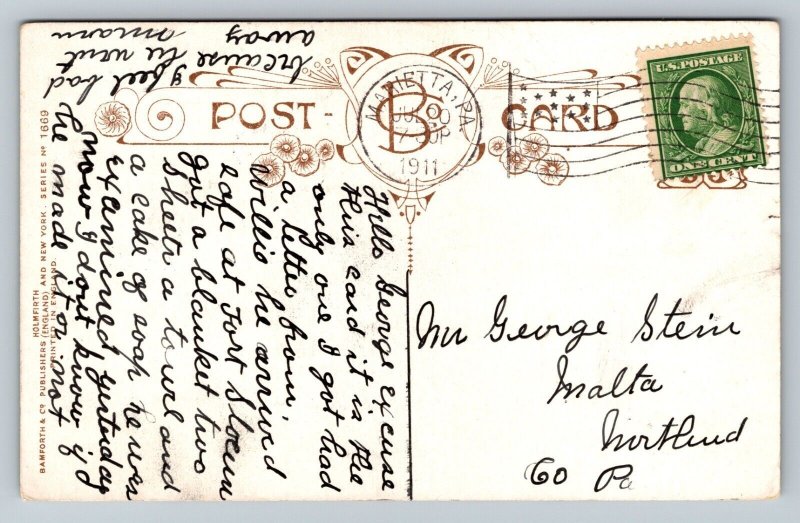 POST-
CARD
MARIETTA, PA.
1911
U.S. POSTAGE
ONE CENT
Hello George excuse
this card it is the
only one I got had
a letter from
Willie he arrived
safe at Fort Slocum
got a blanket two
Sheets a towel and
a cake of soap he was
examined yesterday
now I dont know if
he made it or not
I feel bad
because he went
away
Mr George Stein
Malta
Northund
Co Pa
HOLMFIRTH
BAMFORTH & Co PUBLISHERS (ENGLAND) AND NEW YORK. SERIES No 1669
PRINTED IN ENGLAND